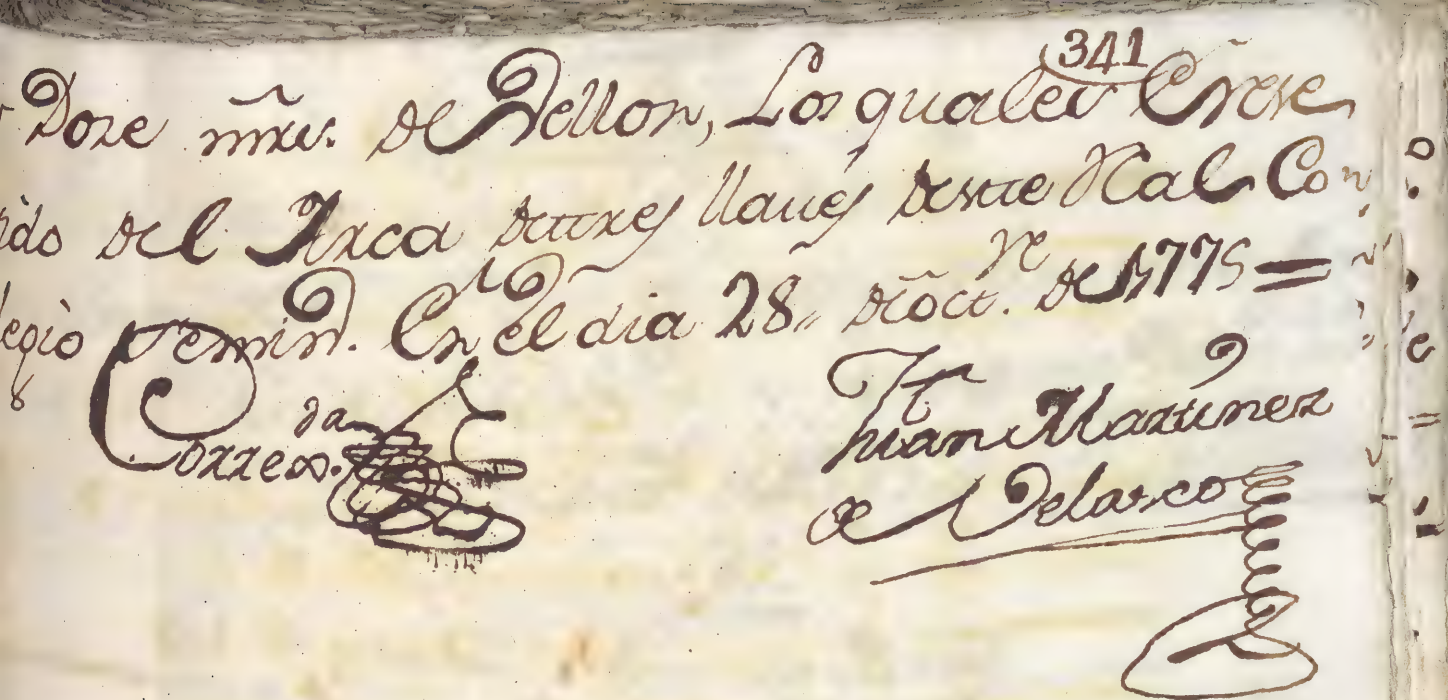 341
Doze mrs. de Vellon, Los quales
ido del Arca de tres llaues deste Rl Con
legio Semin. En el dia 28,, de oct.re de 1775=
Correxda.
Fr. Juan Martinez
de Velasco